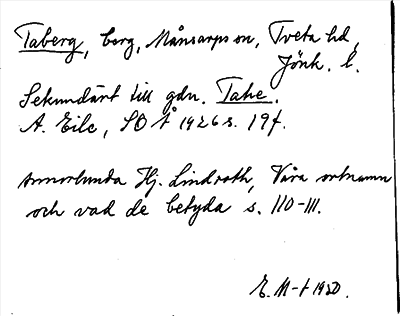 Taberg, berg, Månsarps sn, Tveta hd,
Jönk. l.
Sekundärt till gdn. Tahe.
A. Eile, SOÅ 1926 s. 19f.
annorlunda Hj. Lindroth, Våra ortnamn
och vad de betyda s. 110-111.
E. M-t 1950.